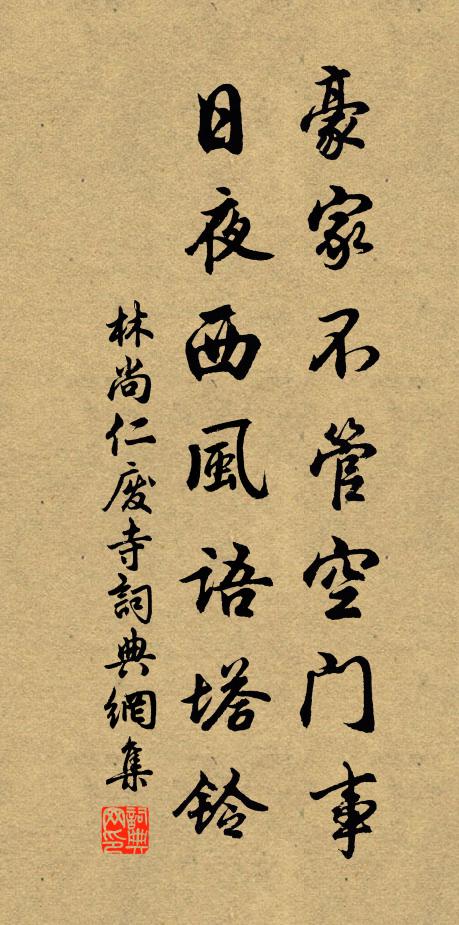 豪家不管空门事
日夜西風语塔鈴
林尚仁廢寺詞典網集
詞典网印